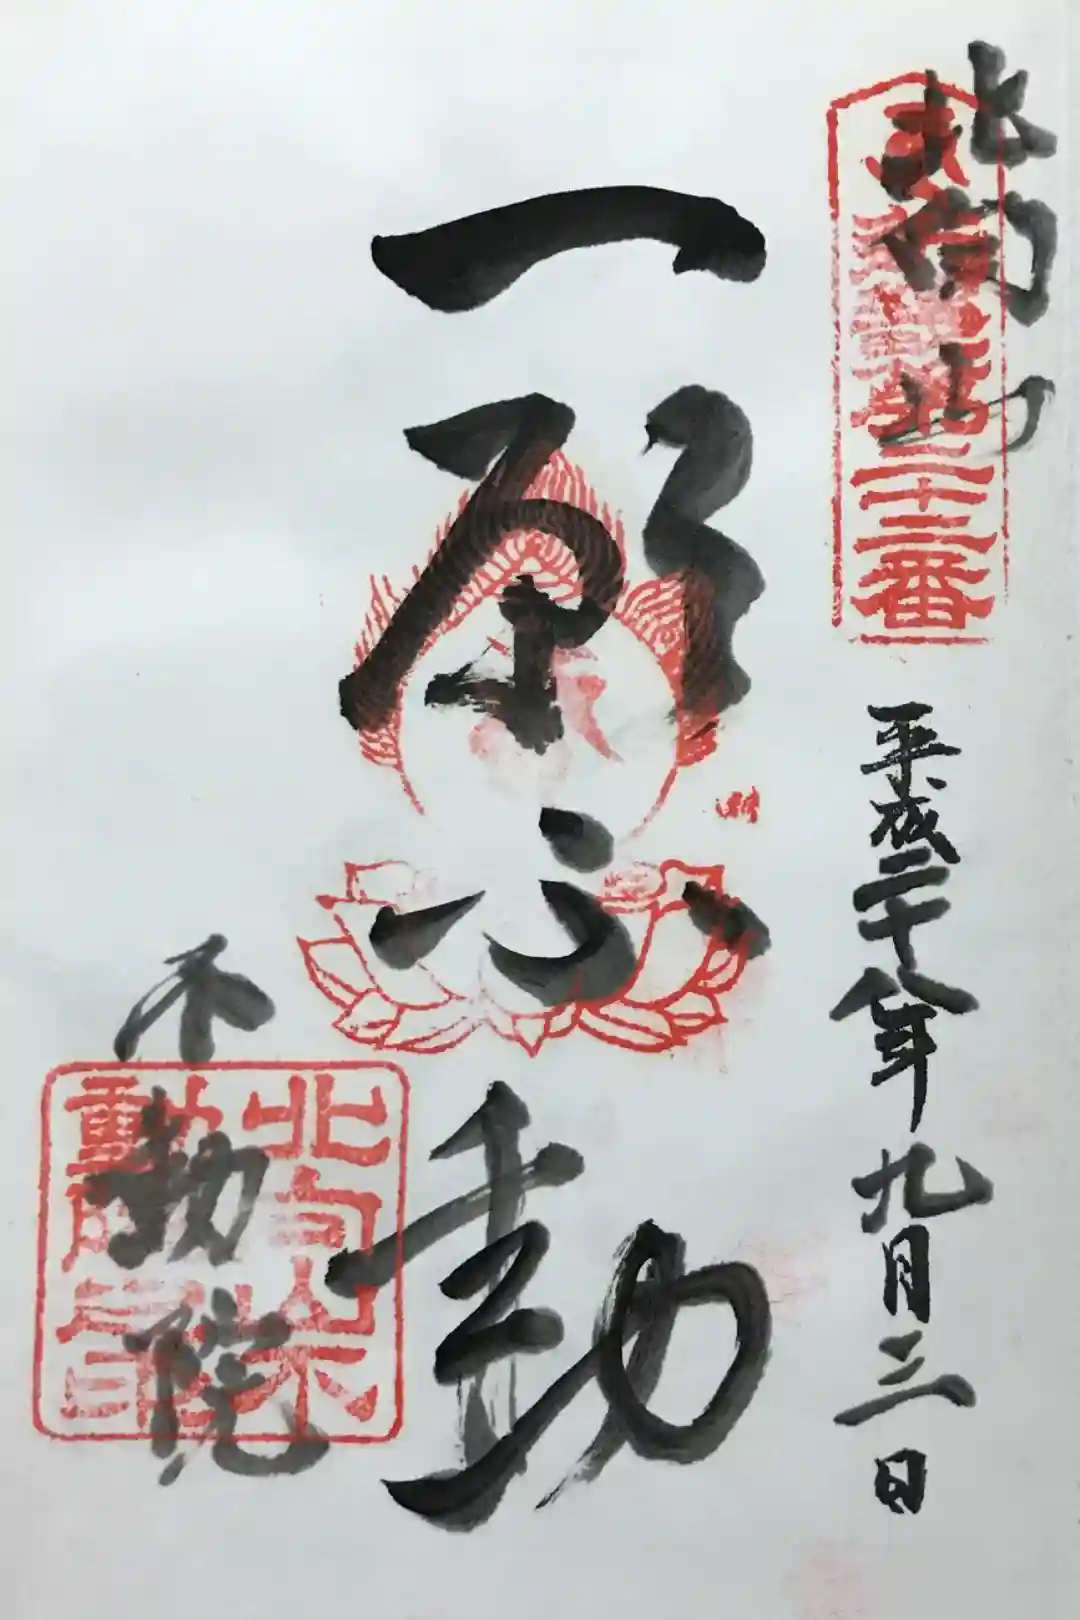 北向山
平成二十八年九月三日
一願不動
不動院
二十二番
北向山不
動院之印